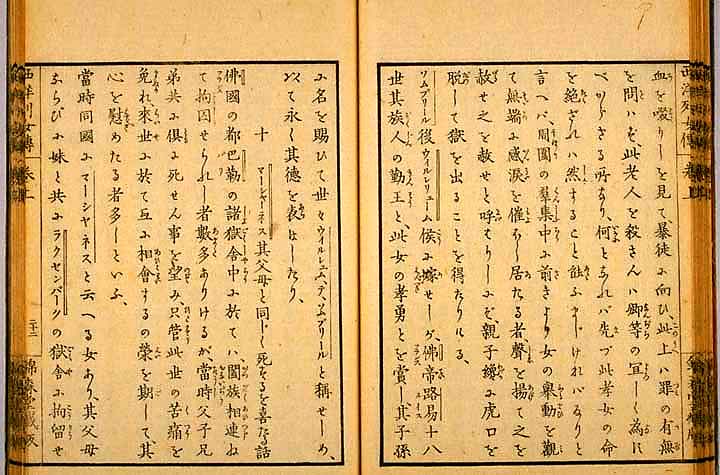 血を啜りしを見て暴徒に向ひ、此上ハ罪の有無
を問ハず、此老人を殺さんハ卿等の宜しく為に
べからざる所なり、何となれバ先づ此孝女の命
を絶されハ然すること能ふまじけれバなりと
言へバ、周圍の羣集中に前きより女の舉動を觀
て無端に感涙を催ほし居たる者聲を揚て之を
赦せ之を赦せと呼むりしにぞ、親子纔に虎口を
脱して獄を出ることを得たりける、
ソムブリール後ウイルレリューム侯に嫁せしが、佛帝路易十八
世其族人の勤王と、此女の孝勇とを賞し、其子孫
に名を賜ひて世々ウイルレエム、デ、ソムブリールと稱せしめ、
以て永く其德を表はしたり、
十 マーシャネス其父母と同じく死するを喜たる話
佛國の都巴勒の諸獄舎中に於てハ、闔族相連ね
て拘囚せられし者數多ありけるが、當時父子兄
弟共に俱に死せん事を望み、只管此世の苦痛を
免れ來世に於て互に相會するの榮を期して其
心を慰めたる者多しといふ、
當時同國にマーシャネスと云へる女あり、其父母
ならびに妹と共にラクセンバークの獄舎に拘留せ
西洋列女傳 卷上
二十二
錦森堂藏版